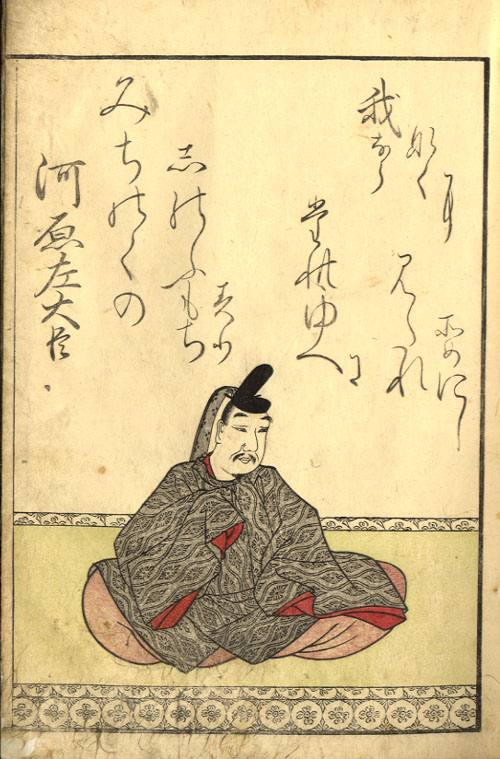 河原左大臣
みちのくの
志のふもち
すり
たれゆへに
みたれ
そめにし
我なら
なくに